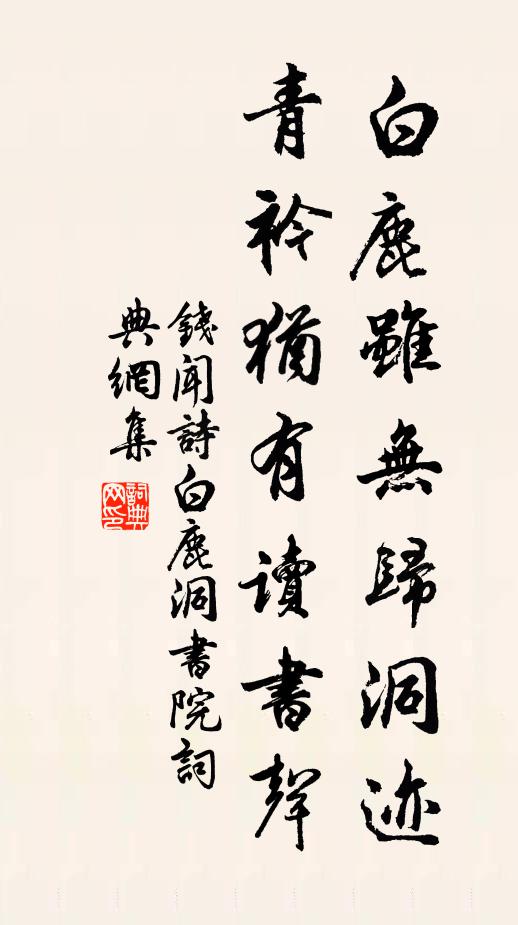 白鹿雖無歸洞迹
青衿猶有讀書聲
錢聞詩白鹿洞書院詞
典網集
詞典网印